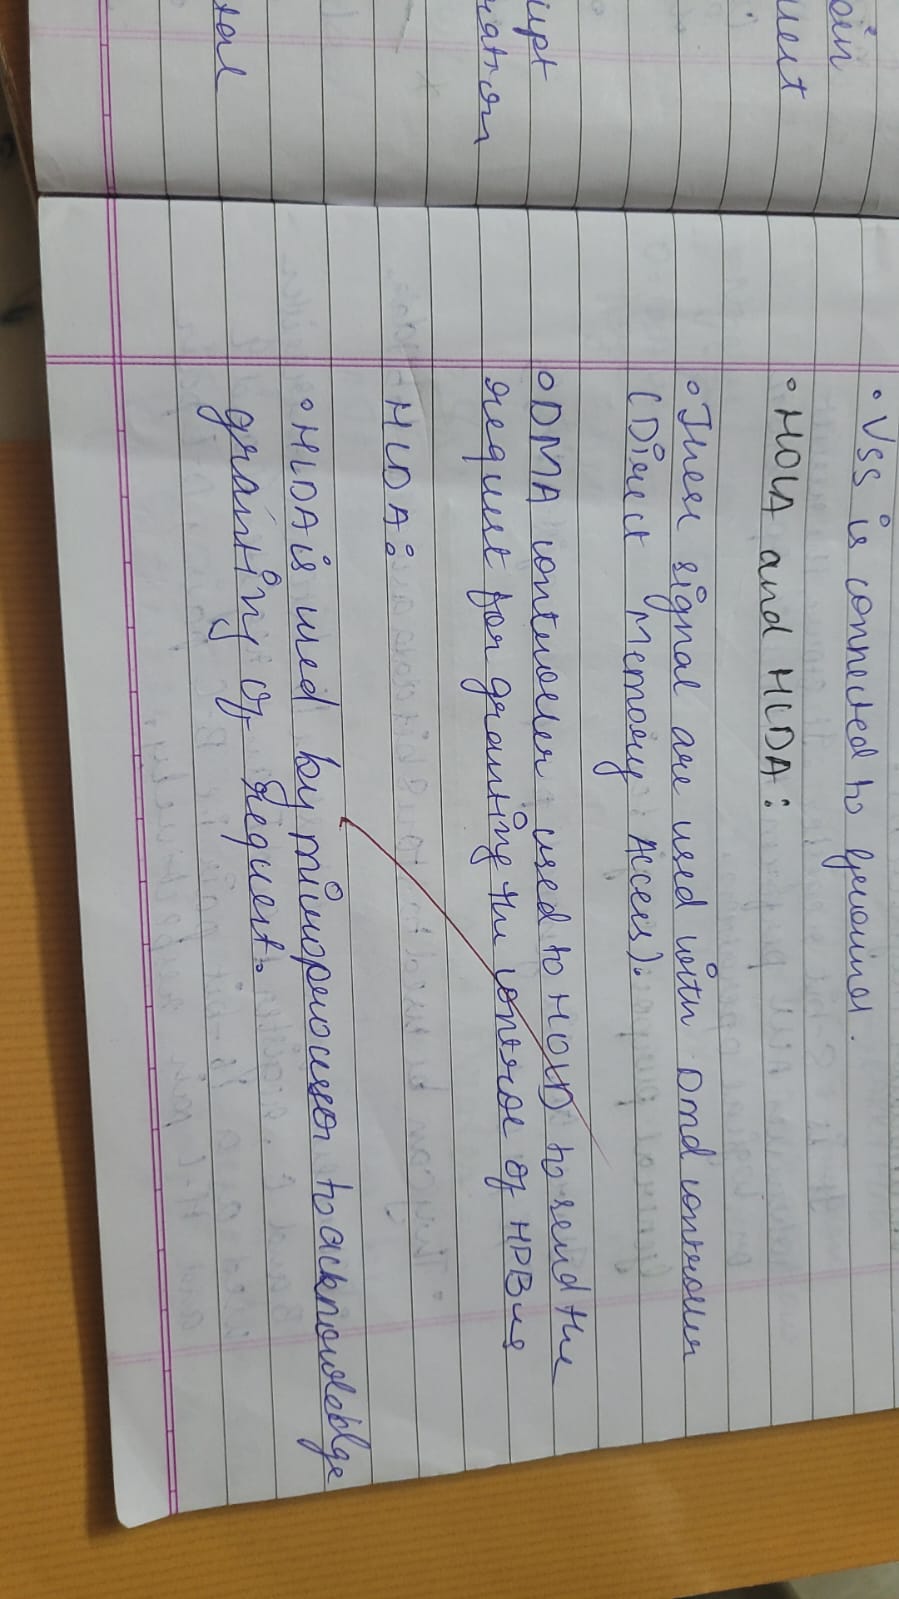 oin
uest
upt
ration
tal
• VSS is connected to Ground.
• HOLA and HLDA:
• These signal are used with Dmd controller
(Direct Memory Access).
• DMA controller used to HOLD to send the
request for granting the control of HPBus
HLDA:
• HLDA is used by microprocessor to acknowledge
granting of request.